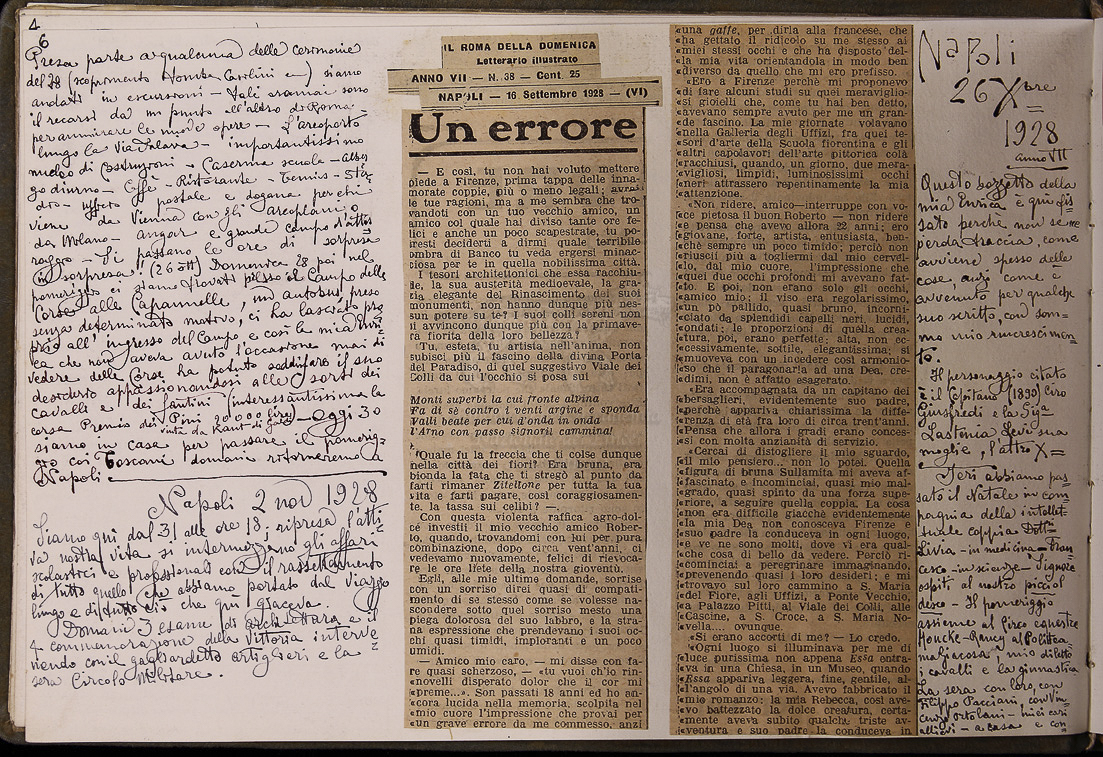 4
6
Presa parte a qualcuna delle cerimonie
del 28 (scoprimento Tomba Carolini e ) siamo
andati in escursioni - Tali oramai sono
il recarsi da un punto all'altro di Roma -
per ammirare le nuove opere - L'areoporto
lungo la Via Salaria - importantissimo
nucleo di Costruzioni - Caserma scuola - alber
go diurno - Caffè - Ristorante - Tennis - Sta
dio - ufficio postale e dogana per chi
viene da Vienna con gli areoplani o
da Milano - angar e grande campo d'atter
raggio - Si passano le ore di sorpresa
in sorpresa! (26 ott) Domenica 28 poi nel
pomeriggio ci siamo trovati presso il Campo delle
Corse alle Capannelle, un autobus preso
senza determinato motivo, ci ha lasciati pro
prio all'ingresso del Campo e così la mia Enri
ca che non aveva avuto l'occasione mai di
vedere delle Corse ha potuto soddisfare il suo
desiderio appassionandosi alle sorti dei
cavalli e dei fantini (interessantissima la
corsa Premio dei Pini 20000 lire
vinta da
) - oggi 30
siamo in casa per passare il pomerig-
gio coi Toscani domani ritorneremo a
Napoli
Napoli 2 nov 1928
Siamo qui dal 31 alle ore 18, ripresa l'atti
va nostra vita si intermezzano gli affari
scolastici e professionali con il rassettamento
di tutto quello che abbiamo portato dal viaggio
lungo e di tutto ciò che qui giaceva.
Domani 3 esame di architettura e il
4 commemorazione della Vittoria interve
nendo con il gagliardetto artiglieri e la
sera Circolo Militare.
IL ROMA DELLA DOMENICA
Letterario illustrato
ANNO VII — N. 38 — Cent. 25
NAPOLI — 16 Settembre 1928 — (VI)
Un errore
— E così, tu non hai voluto mettere
piede a Firenze, prima tappa delle inna-
morate coppie, più o meno legali; avrai
le tue ragioni, ma a me sembra che tro-
vandoti con un tuo vecchio amico, un
amico col quale hai diviso tante ore fe-
lici e anche un poco scapestrate, tu po-
tresti deciderti a dirmi quale terribile
ombra di Banco tu veda ergersi minac-
ciosa per te in quella nobilissima città.
I tesori architettonici che essa racchiu-
de, la sua austerità medioevale, la gra-
zia elegante del Rinascimento dei suoi
monumenti, non hanno dunque più nes-
sun potere su te? I suoi colli sereni non
ti avvincono dunque più con la primave-
ra fiorita della loro bellezza?
Tu, esteta, tu artista nell'anima, non
subisci più il fascino della divina Porta
del Paradiso, di quel suggestivo Viale dei
Colli da cui l'occhio si posa sui
Monti superbi la cui fronte alpina
Fa di sè contro i venti argine e sponda
Valli beate per cui d'onda in onda
l'Arno con passo signoril cammina!
Quale fu la freccia che ti colse dunque
nella città dei fiori? Era bruna, era
bionda la fata che ti stregò al punto da
farti rimaner Zitellone per tutta la tua
vita e farti pagare, così coraggiosamen-
te, la tassa sul celibi? —.
Con questa violenta raffica agro-dol-
ce investii il mio vecchio amico Rober-
to, quando, trovandomi con lui per pura
combinazione, dopo circa vent'anni, ci
vedevamo nuovamente, felici di rievoca-
re le ore liete della nostra gioventù.
Egli, alle mie ultime domande, sorrise
con un sorriso direi quasi di compati-
mento di se stesso come se volesse na-
scondere sotto quel sorriso mesto una
piega dolorosa del suo labbro, e la stra-
na espressione che prendevano i suoi oc-
chi quasi timidi, imploranti e un poco
umidi.
— Amico mio caro, — mi disse con fa-
re quasi scherzoso, — «tu vuoi ch'io rin-
novelli disperato dolor che il cor mi
preme...». Son passati 18 anni ed ho an-
cora lucida nella memoria, scolpita nel
mio cuore l'impressione che provai per
un grave errore da me commesso, anzi
«una gaffe, per dirla alla francese, che
«ha gettato il ridicolo su me stesso ai
«miei stessi occhi e che ha disposto del-
«la mia vita orientandola in modo ben
«diverso da quello che mi ero prefisso.
«Ero a Firenze perchè mi proponevo
«di fare alcuni studi su quei meraviglio-
«si gioielli che, come tu hai ben detto,
«avevano sempre avuto per me un gran-
«de fascino. La mie giornate volavano
«nella Galleria degli Uffizi, fra quei te-
«sori d'arte della Scuola fiorentina e gli
«altri capolavori dell'arte pittorica colà
«racchiusi, quando, un giorno, due mera-
«vigliosi, limpidi, luminosissimi occhi
«neri attrassero repentinamente la mia
«attenzione.
«Non ridere, amico—interruppe con vo-
«ce pietosa il buon Roberto — non ridere
«e pensa che avevo allora 22 anni; ero
«giovane, forte, artista, entusiasta, ben-
«chè sempre un poco timido; perciò non
«riuscii più a togliermi dal mio cervel-
«lo, dal mio cuore, l'impressione che
«quei due occhi profondi mi avevano fat-
«to. E poi, non erano solo gli occhi,
«amico mio; il viso era regolarissimo,
«un pò pallido, quasi bruno, incorni-
«ciato da splendidi capelli neri, lucidi,
«ondati; le proporzioni di quella crea-
«tura, poi, erano perfette; alta, non ec-
«cessivamente, sottile, elegantissima; si
«muoveva con un incedere così armonio-
«so che il paragonarla ad una Dea, cre-
«dimi, non è affatto esagerato.
«Era accompagnata da un capitano dei
«bersaglieri, evidentemente suo padre,
«perchè appariva chiarissima la diffe-
«renza di età fra loro di circa trent'anni.
«Pensa che allora i gradi erano conces-
«si con molta anzianità di servizio.
«Cercai di distogliere il mio sguardo,
«il mio pensiero... non lo potei. Quella
«figura di bruna Sullamita mi aveva af-
«fascinato e incominciai, quasi mio mal-
«grado, quasi spinto da una forza supe-
«riore, a seguire quella coppia. La cosa
«non era difficile giacchè evidentemente
«la mia Dea non conosceva Firenze e
«suo padre la conduceva in ogni luogo,
«e ve ne sono molti, dove vi era qual-
«che cosa di bello da vedere. Perciò in-
«cominciai a peregrinare immaginando,
«prevenendo quasi i loro desideri; e mi
«trovavo sul loro cammino a S. Maria
«del Fiore, agli Uffizi, a Ponte Vecchio,
«a Palazzo Pitti, al Viale dei Colli, alle
«Cascine, a S. Croce, a S. Maria No-
«vella.... ovunque.
«Si erano accorti di me? — Lo credo.
«Ogni luogo si illuminava per me di
«luce purissima non appena Essa entra-
«va in una Chiesa, in un Museo, quando
«Essa appariva leggera, fine, gentile, al-
«l'angolo di una via. Avevo fabbricato il
«mio romanzo: la mia Rebecca, così ave-
«vo battezzato la dolce creatura, certa-
«mente aveva subito qualche triste av-
«ventura e suo padre la conduceva in
Napoli
26 Xbre
1928
anno VII
Questo bozzetto della
mia Enrica è qui fis
sato perchè non se ne
perda traccia, come
avviene spesso delle
cose, anzi come è
avvenuto per qualche
suo scritto, con som-
mo mio rincrescimen
to.
Il personaggio citato
è il Capitano (1899) Ciro
Giuffredi e la Sig.a
Lastenia Levi sua
moglie, l'altro X =
Ieri abbiamo pas
sato il Natale in com
pagnia della intellet
tuale coppia Dott.
Livia - in medicina - Fran
cesco - in scienze - Signore
ospiti al nostro piccol
desco - Il pomeriggio
assieme al Circo equestre
Houcke-Rancy al Politea
ma Giacosa - mio diletto
i cavalli e la ginnastica
La sera con loro, con
Filippo Pacciani, con Vin
cenzo Ortolani - miei cari
allievi - a casa e con